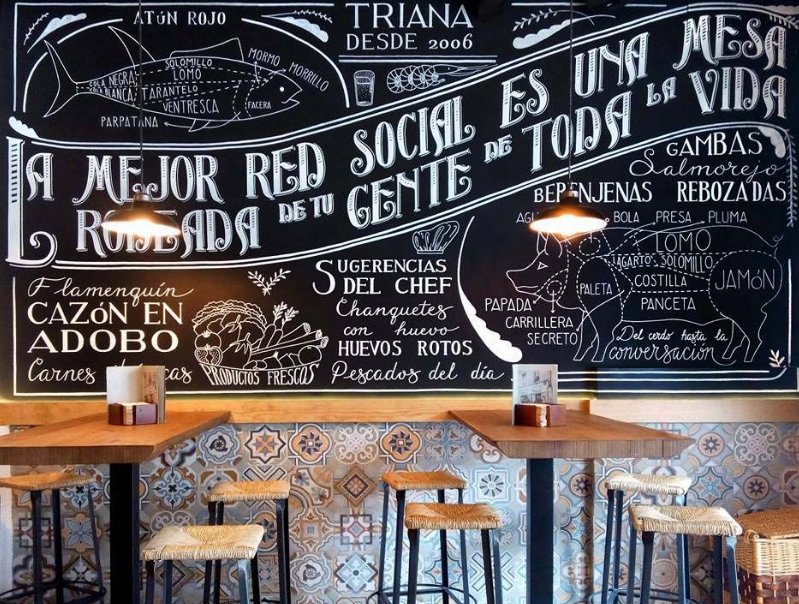 ATÚN ROJO
SOLOMILLO
MORMO
MORRILLO
COLA NEGRA
LOMO
COLA BLANCA
TARANTELO
VENTRESCA
FACERA
PARPATANA
TRIANA
DESDE 2006
LA MEJOR RED SOCIAL ES UNA MESA
RODEADA DE TU GENTE DE TODA LA VIDA
GAMBAS
Salmorejo
BERENJENAS REBOZADAS
BOLA PRESA PLUMA
LOMO
LAGARTO SOLOMILLO
PALETA
COSTILLA
JAMÓN
PANCETA
PAPADA
CARRILLERA
SECRETO
Del cerdo hasta la
conversación
Flamenquín
CAZÓN EN
ADOBO
Carnes
PRODUCTOS FRESCOS
SUGERENCIAS
DEL CHEF
Chanquetes
con huevo
HUEVOS ROTOS
Pescados del día